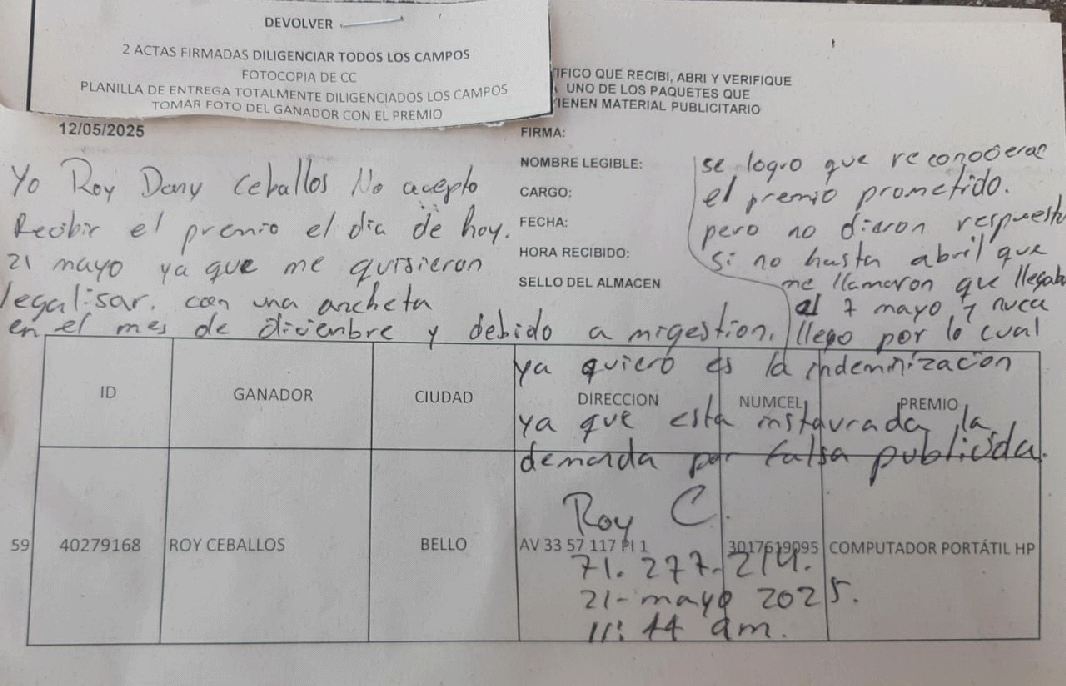 DEVOLVER
2 ACTAS FIRMADAS DILIGENCIAR TODOS LOS CAMPOS
FOTOCOPIA DE CC
PLANILLA DE ENTREGA TOTALMENTE DILIGENCIADOS LOS CAMPOS
TOMAR FOTO DEL GANADOR CON EL PREMIO
TIFICO QUE RECIBI, ABRI Y VERIFIQUE
UNO DE LOS PAQUETES QUE
TIENEN MATERIAL PUBLICITARIO
12/05/2025
FIRMA:
NOMBRE LEGIBLE:
CARGO:
FECHA:
HORA RECIBIDO:
SELLO DEL ALMACEN
Yo Roy Dany Ceballos No acepto
Recibir el premio el dia de hoy.
21 mayo ya que me quisieron
legalisar. con una ancheta
en el mes de diciembre y debido a migestion,
se logro que reconocieran
el premio prometido.
pero no dieron respuesta
si no hasta abril que
me llamaron que llegaba
el 7 mayo y nuca
llego por lo cual
ya quiero es la indemnizacion
ya que esta instaurada la
demanda por falsa publicida.
ID GANADOR CIUDAD DIRECCION NUMCEL PREMIO
59 40279168 ROY CEBALLOS BELLO AV 33 57 117 PI 1 3017619095 COMPUTADOR PORTÁTIL HP
Roy C.
71.277.214.
21-mayo 2025.
11:44 am.